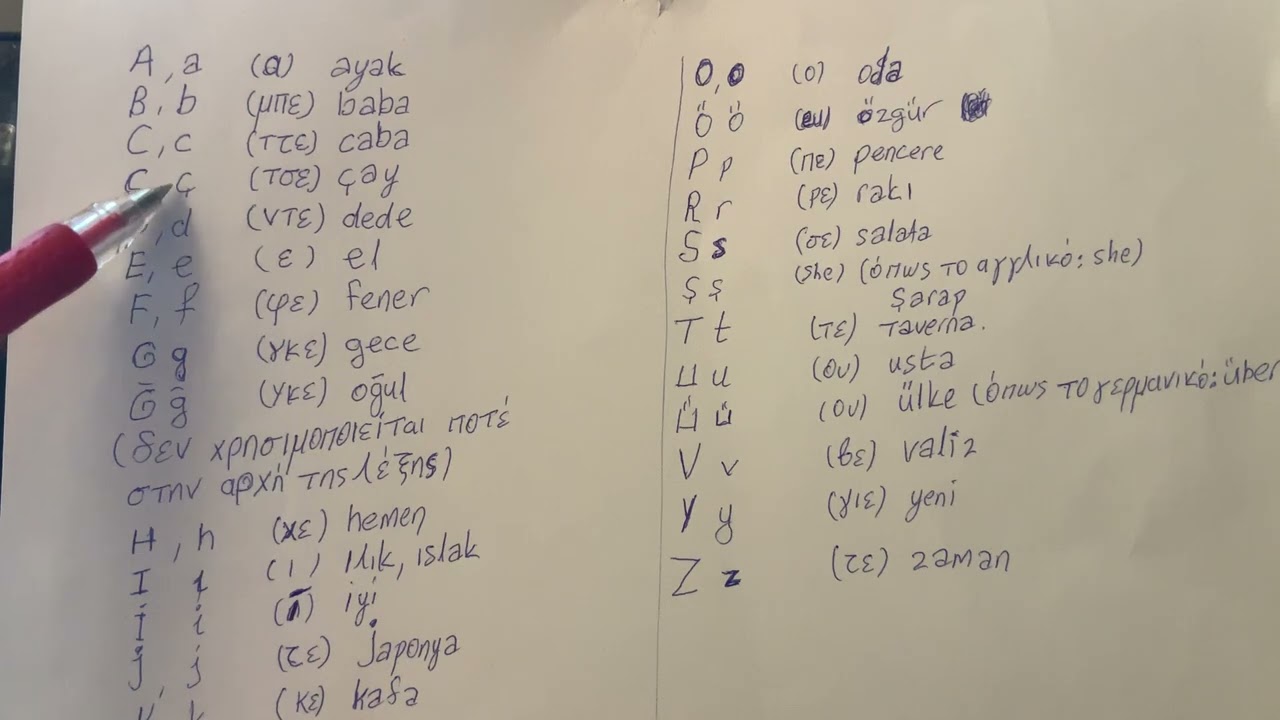 A, a (α) ayak
B, b (μπε) baba
C, c (ττε) caba
Ç ç (τσε) çay
, d (ντε) dede
E, e (ε) el
F, f (φε) fener
G g (γκε) gece
Ğ ğ (γκε) oğul
(δεν χρησιμοποιείται ποτέ
στην αρχή της λέξης)
H, h (χε) hemen
I ı (ι) ılık, ıslak
İ i iyi
j, j (ζε) Japonya
k (κε) kafa
O, o (ο) oda
Ö ö (eu) özgür
P p (πε) pencere
R r (ρε) rakı
S s (σε) salata
Ş ş (she) (όπως το αγγλικό: she)
Şarap
T t (τε) taverna.
U u (ου) usta
Ü ü (ου) ülke (όπως το γερμανικό: über
V v (βε) valiz
Y y (γιε) yeni
Z z (ζε) zaman